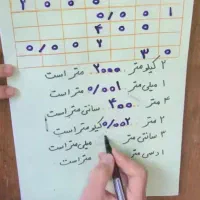 ۲ ۰ ۰ ۰
۰/۰ ۰ ۱
۴ ۰ ۰
۰/۰ ۰ ۲
۳ ۰
۲ کیلومتر ۲۰۰۰ متر است
۱ میلی متر ۰/۰۰۱ متر است
۴ متر ۴۰۰ سانتی متر است
۲ متر ۰/۰۰۲ کیلومتر است
۳ سانتی متر میلی متر است
۱ دسی متر متر است